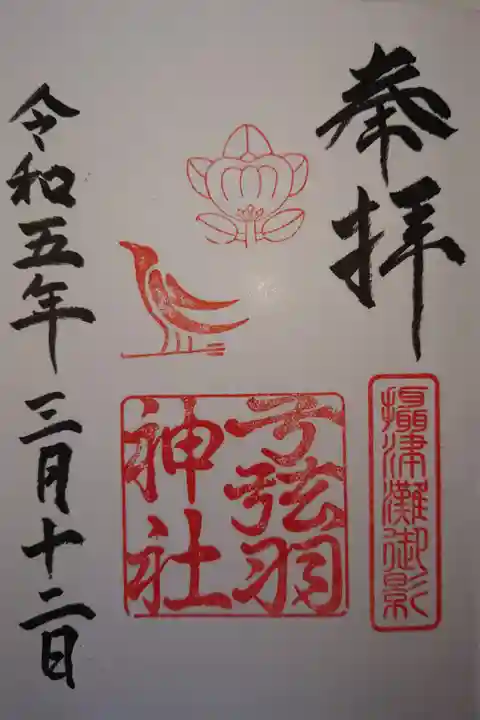 奉拝
攝津灘御影
弓弦羽
神社
令和五年三月十二日